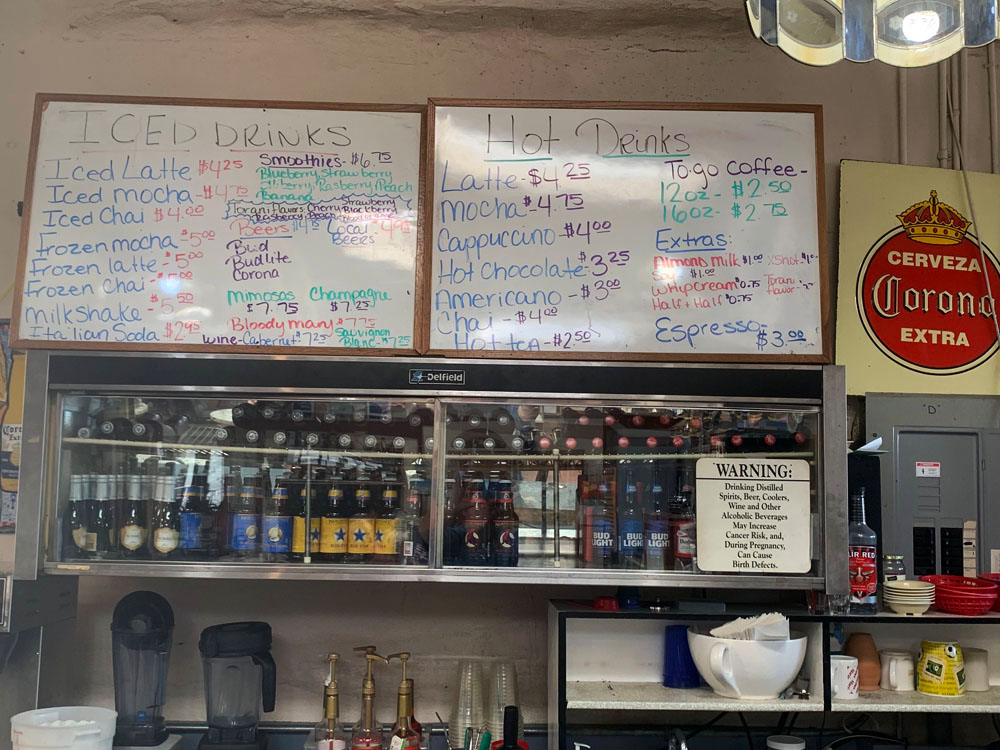 ICED DRINKS
Iced Latte $4.25
Iced mocha - $4.75
Iced Chai $4.00
frozen mocha - $5.00
frozen latte - $5.00
frozen Chai - $5.00
milkshake - $5.50
Ita'lian Soda $2.95
Smoothies - $6.75
Blueberry, Strawberry
Rasberry, Peach
Banana
Torani flavors Cherry, Strawberry
Blackberry
Beers
Local
Beers
Bud
Budlite
Corona
Mimosas Champagne
$7.75 $7.25
Bloody mary $7.75
Wine - Cabernet $7.25 Sauvignon
Blanc - $7.25
Hot Drinks
Latte - $4.25
Mocha - $4.75
Cappuccino - $4.00
Hot Chocolate - $3.25
Americano - $3.00
Chai - $4.00
Hot tea - $2.50
To-go coffee -
12oz - $2.50
16oz - $2.75
Extras:
Almond milk $1.00 xShot $1.-
Soy $1.00
Whipcream $0.75 Torani
flavor
Half + Half $0.75
Espresso -
$3.00
Delfield
CERVEZA
Corona
EXTRA
"D"
WARNING:
Drinking Distilled
Spirits, Beer, Coolers,
Wine and Other
Alcoholic Beverages
May Increase
Cancer Risk, and,
During Pregnancy,
Can Cause
Birth Defects.
BUD
LIGHT
BUD
LIGHT
BUD
LIGHT